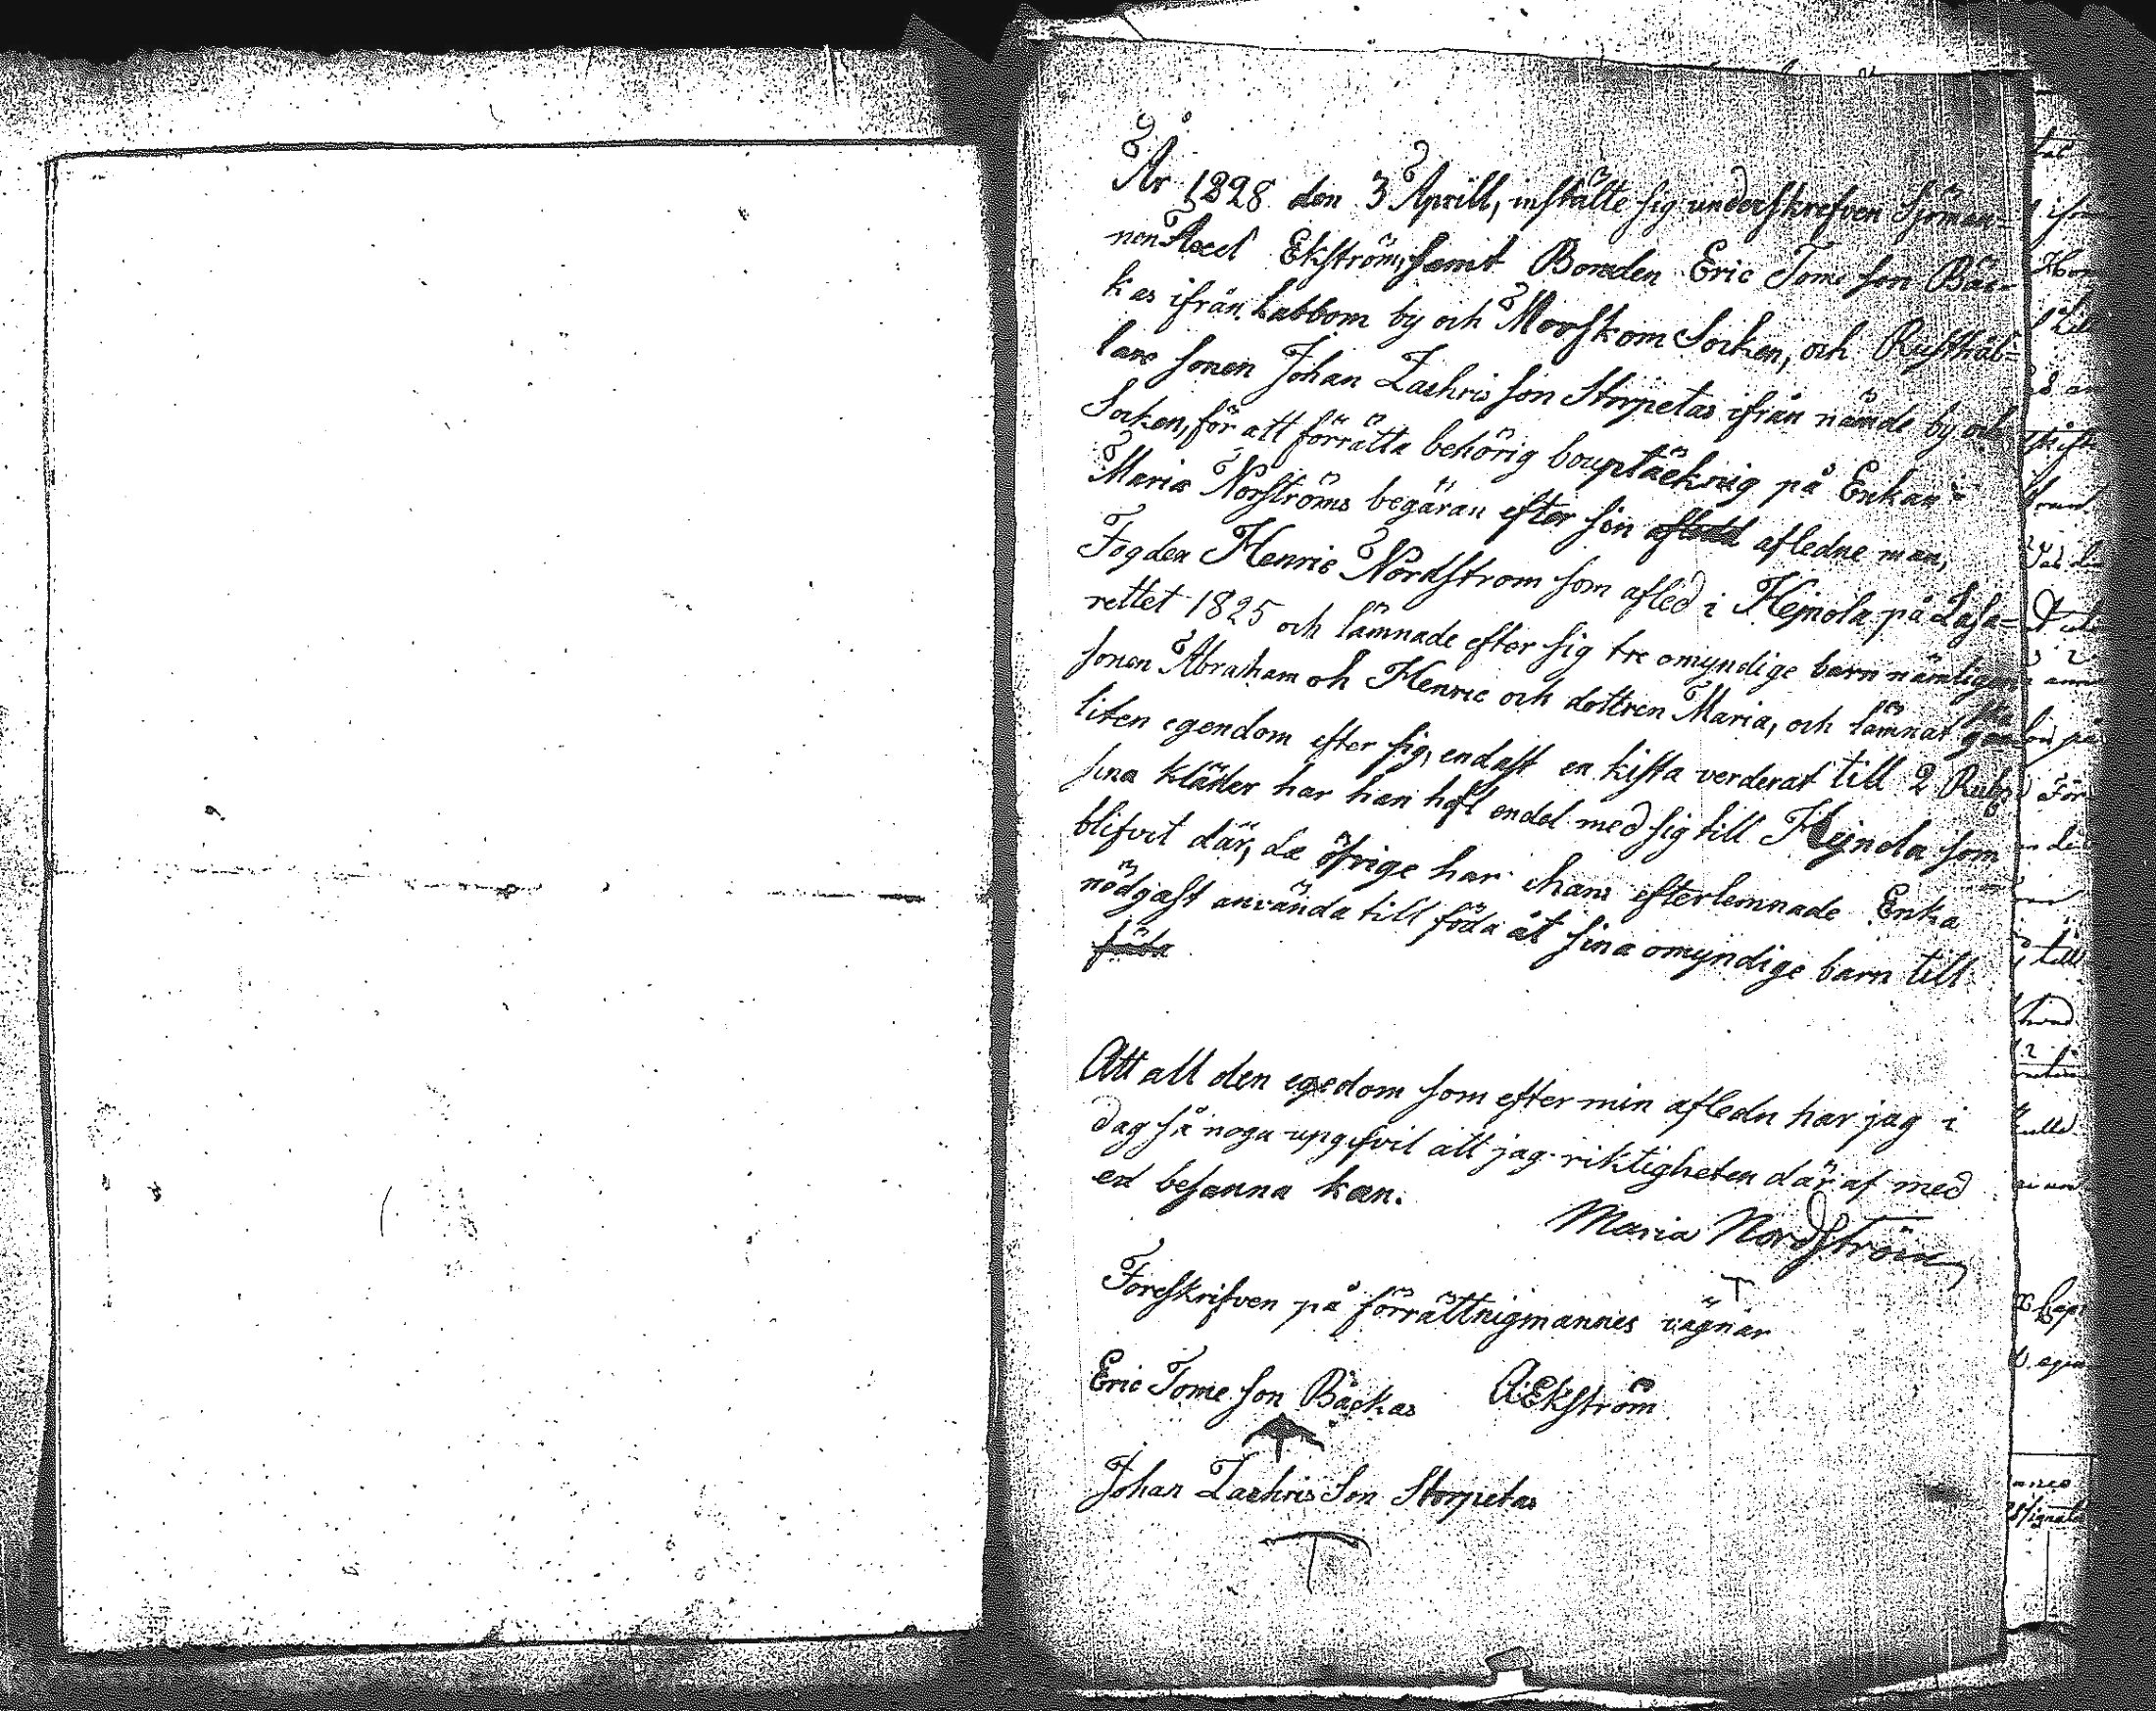 År 1828 den 3 Aprill, instälte sig underskrefven Sjöman-
nen Axel Ekström, samt Bonden Eric Tome son Bäc-
kas ifrån Labbom by och Morskom Socken, och Rusthål-
lare sonen Johan Zachris son Storpetas ifrån nämde by och
Socken, för att förrätta behörig bouptäcknig på Enkan
Maria Norströms begäran efter sin afledne man,
Fogden Henric Nordstrom som afled i Hejnola på Lasa-
rettet 1825 och lämnade efter sig tre omyndige barn nämligen
sonen Abraham och Henric och dottren Maria, och lämnat
liten egendom efter sig, endast en kista verderat till 2 Rub
sina kläder har han haft endel med sig till Hejnola som
blifvit där, de öfrige har hans efterlemnade Enka
nödgast använda till föda åt sina omyndige barn till
föda
Att all den egedom som efter min afledn har jag i
dag så noga upgifvil att jag riktigheten där af med
ed besanna kan.
Maria Nordström
Foreskrifven på förrättnigmannes vägnar
Eric Tome son Bäckas AEkström
Johan Zachris Son Storpetas